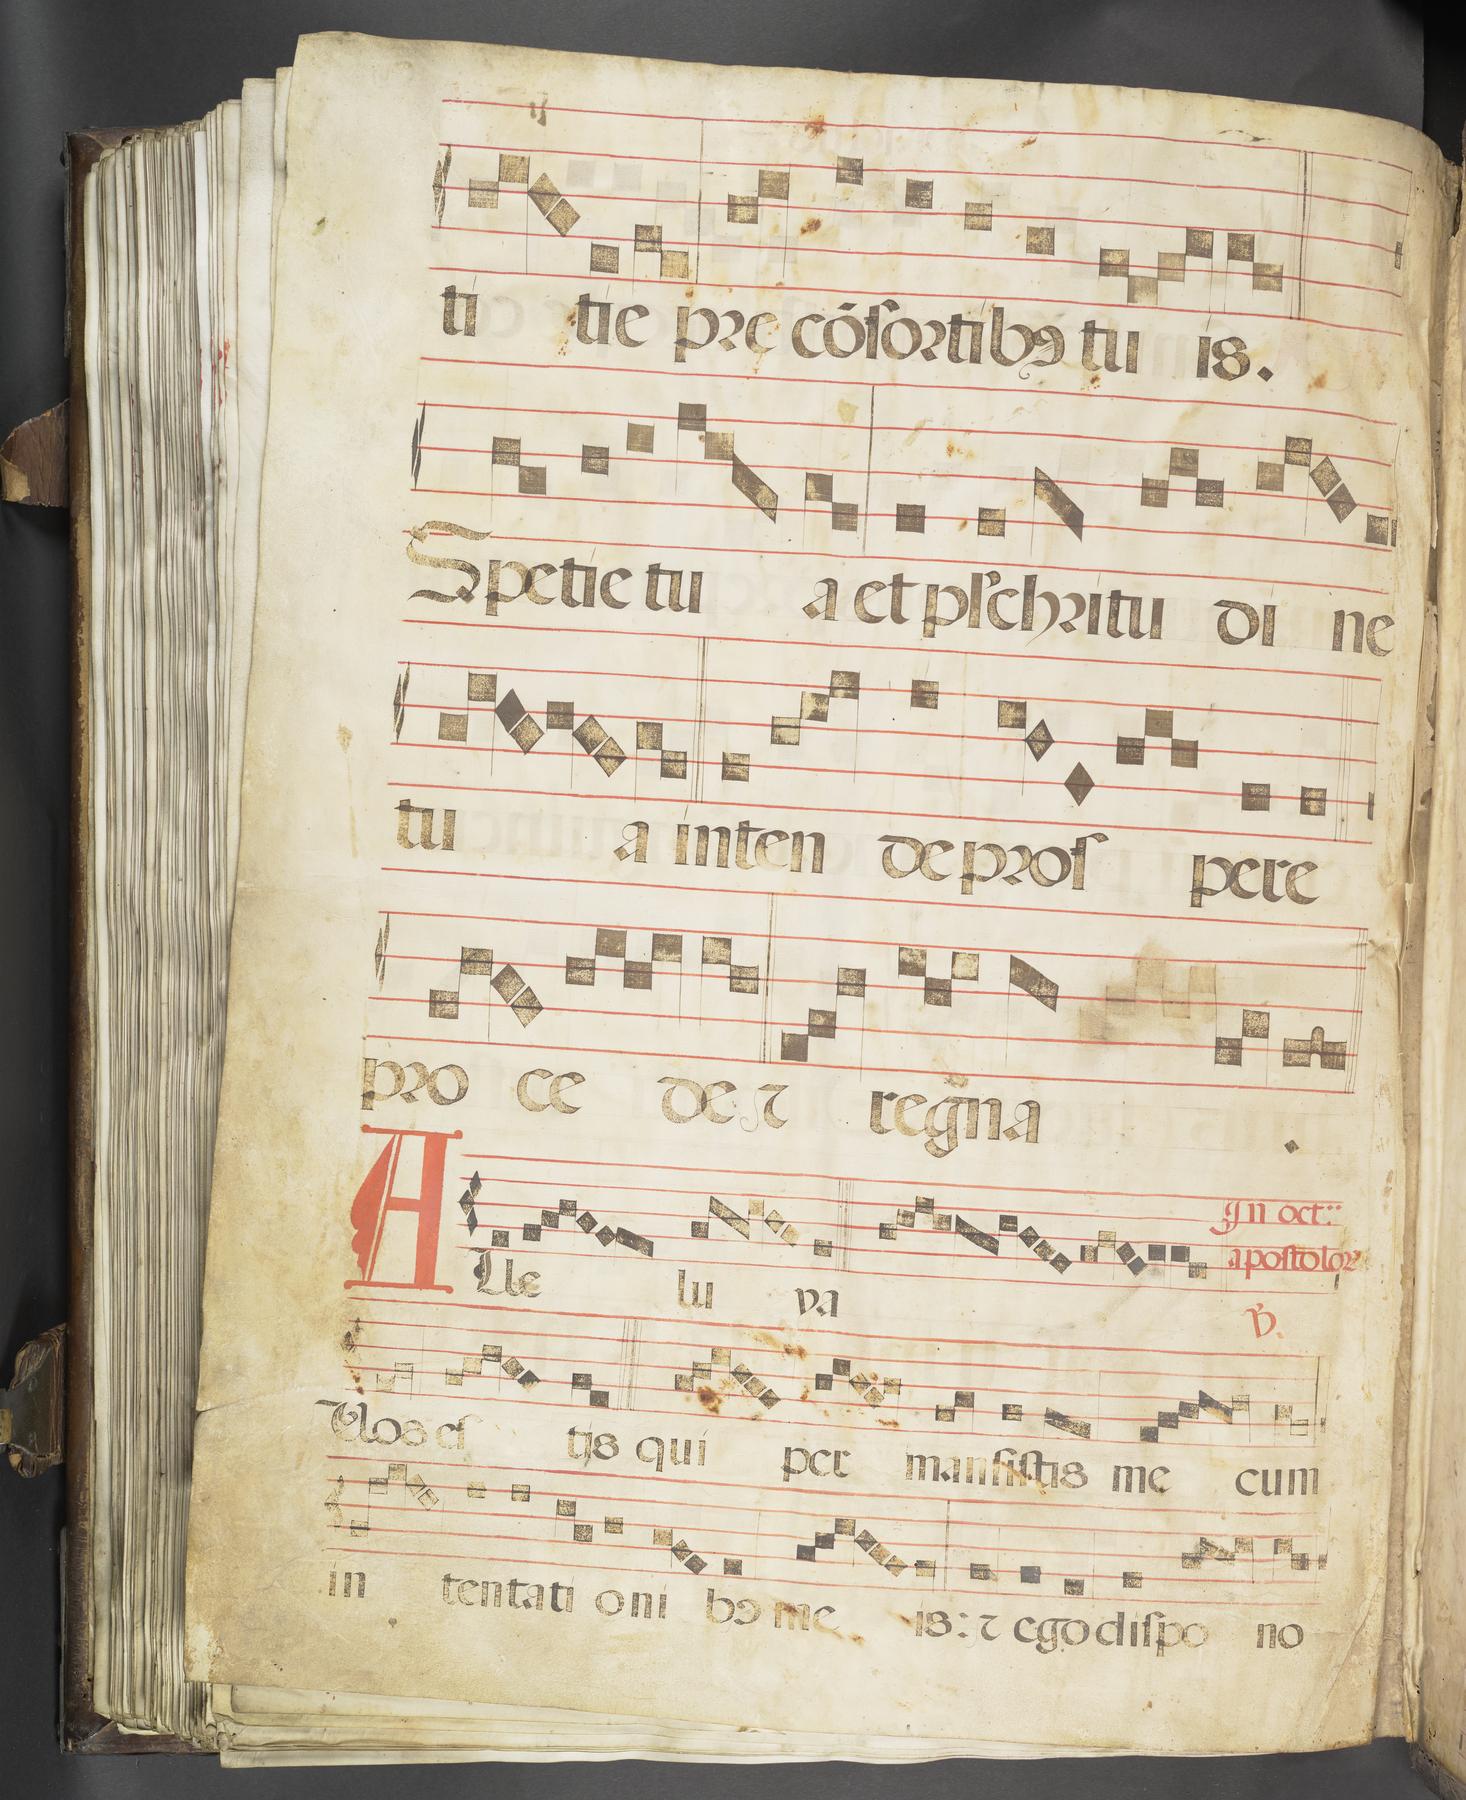 ti tie pre cõſortibꝰ tu is.
Spetie tu a et pſchritu di ne
tu a inten de proſ pere
pro ce de ⁊ regña .
In oct::
apostoloꝝ
Alle lu ya ℣.
Vos eſ tis qui per manſiſtis me cum
in tentati oni bꝰ me is: ⁊ ego diſpo no